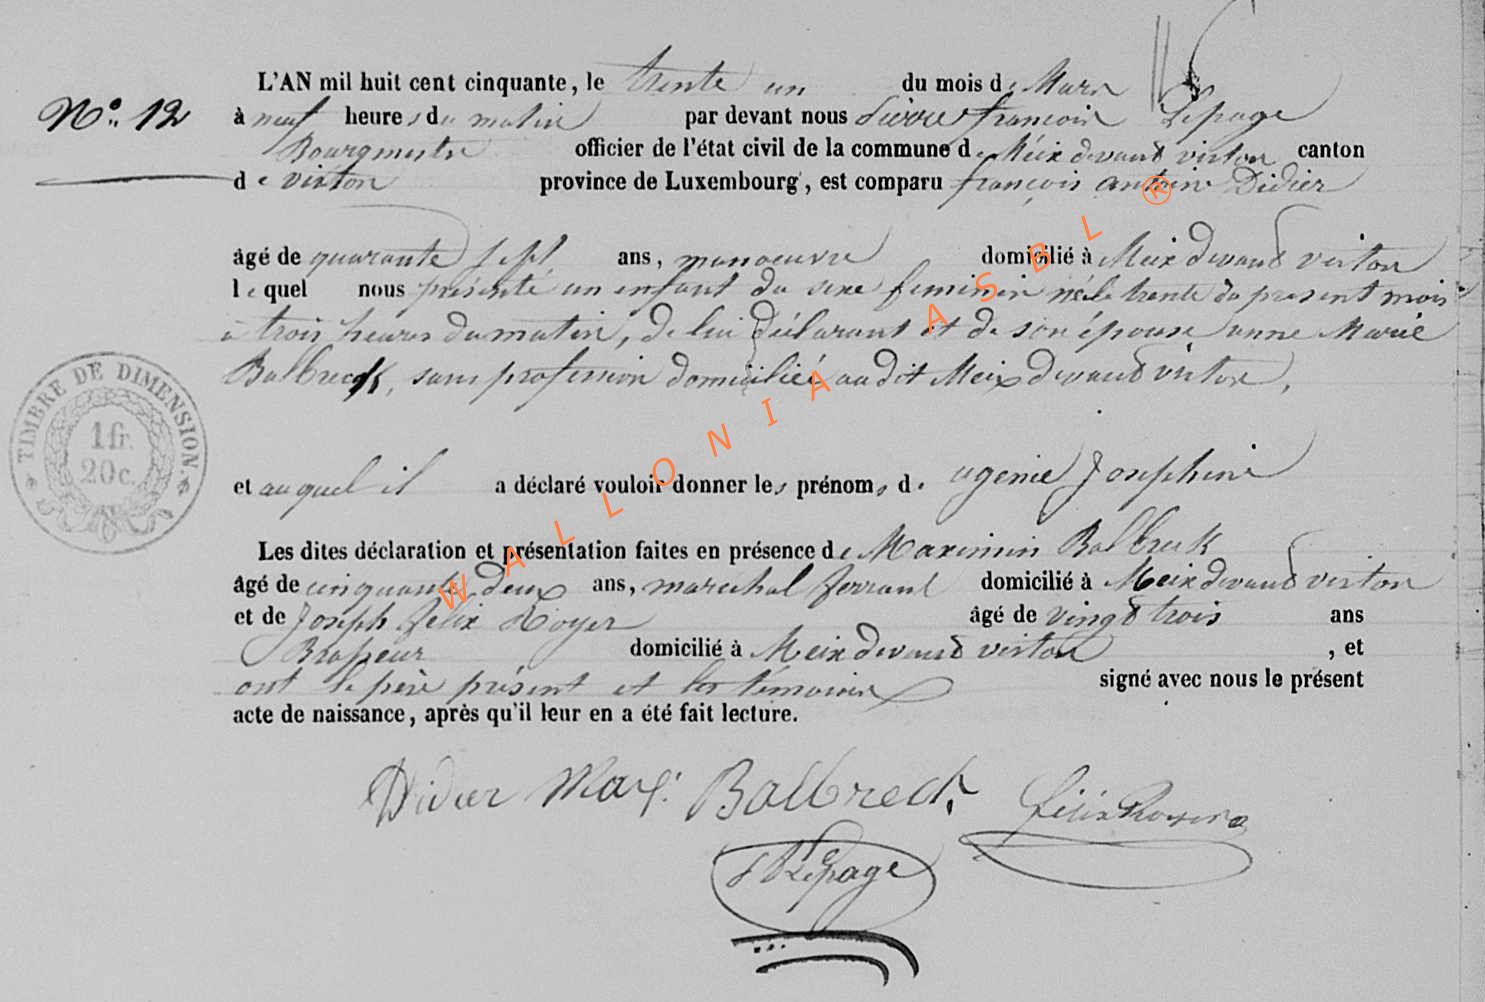 N° 12
L'AN mil huit cent cinquante, le trente un du mois de Mars
à neuf heures du matin par devant nous Pierre françois Lepage
Bourgmestre officier de l'état civil de la commune de Meix devand virton canton
de virton province de Luxembourg, est comparu françois antoine Didier
âgé de quarante sept ans, manoeuvre domicilié à Meix devand virton
lequel nous présenté un enfant du sexe feminin né le trente du present mois
à trois heures du matin, de lui déclarant et de son épouse anne Marie
Balbreck, sans profession domiciliée audit Meix devand virton,
et auquel il a déclaré vouloir donner les prénoms de ugenie Josephine
Les dites déclaration et présentation faites en présence de Maximin Balbreck
âgé de cinquante deux ans, marechal ferrant domicilié à Meix devand virton
et de Joseph felix Royer âgé de vingt trois ans
Brasseur domicilié à Meix devand virton, et
ont le père présent et les témoins signé avec nous le présent
acte de naissance, après qu'il leur en a été fait lecture.
TIMBRE DE DIMENSION.
1 fr.
20 c.
Didier Max. Balbreck, Félix Royer
Lepage
WALLONIA ASBL ®